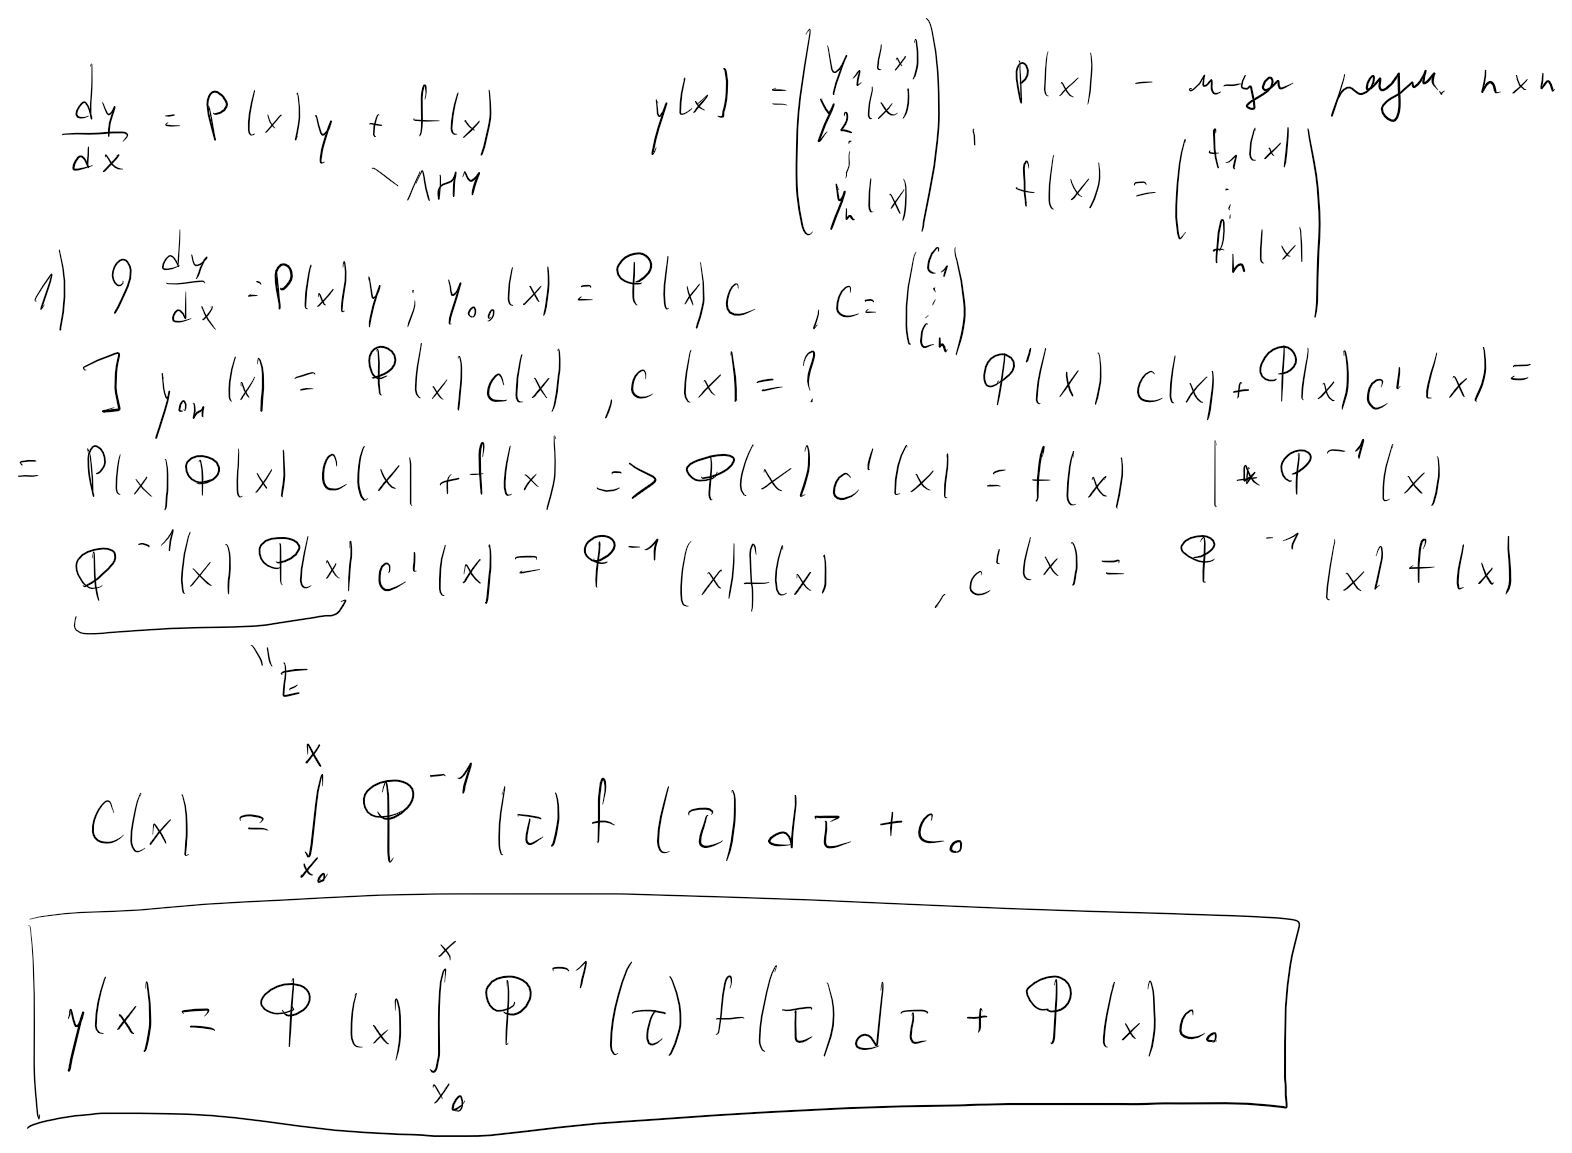 dy/dx = P(x)y + f(x) ЛНУ y(x) = (y₁(x) y₂(x) ⋮ yₙ(x)), P(x) – м-ца разм. n×n
f(x) = (f₁(x) ⋮ fₙ(x))
1) dy/dx = P(x)y ; y₀₀(x) = Φ(x)c , c = (c₁ ⋮ cₙ)
] yон(x) = Φ(x) c(x) , c(x) = ? Φ'(x) c(x) + Φ(x) c'(x) =
= P(x) Φ(x) c(x) + f(x) => Φ(x) c'(x) = f(x) | * Φ⁻¹(x)
Φ⁻¹(x) Φ(x) c'(x) = Φ⁻¹(x) f(x) , c'(x) = Φ⁻¹(x) f(x)
"E
c(x) = ∫ₓ₀ˣ Φ⁻¹(τ) f(τ) dτ + c₀
y(x) = Φ(x) ∫ₓ₀ˣ Φ⁻¹(τ) f(τ) dτ + Φ(x) c₀